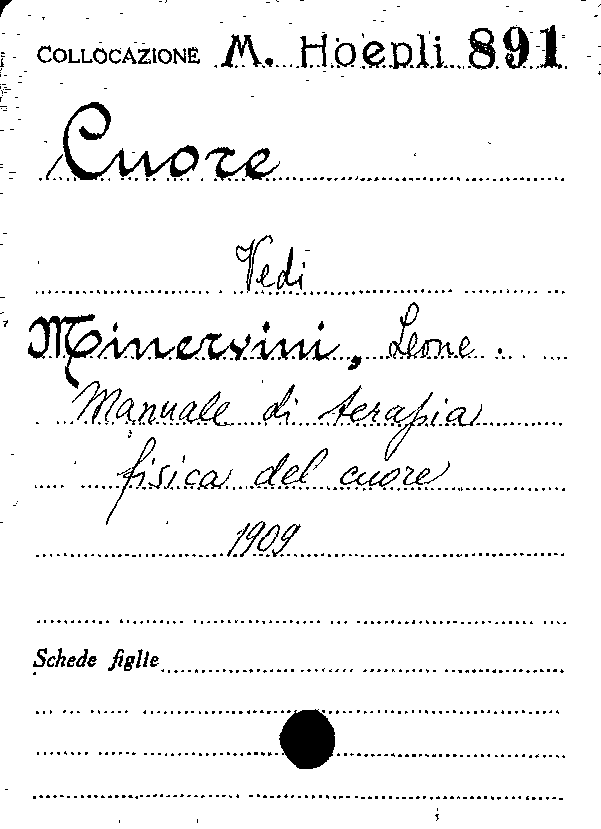 COLLOCAZIONE M. Hoepli 891
Cuore
Vedi
Minervini, Leone.
Manuale di terapia
fisica del cuore
1909
Schede figlie